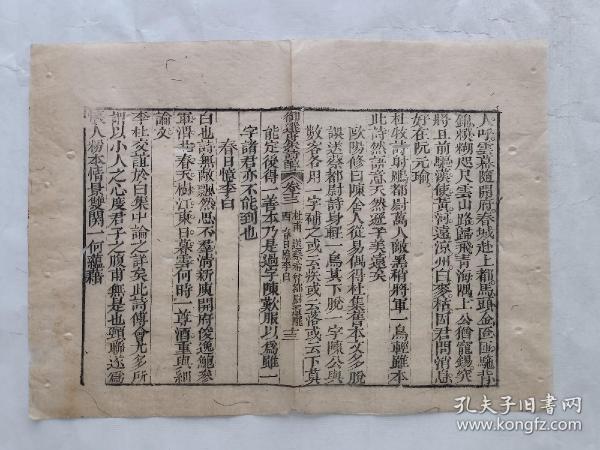 人呼雲幕隨開府春城赴上都馬頭金匼匝駞背
錦糢糊咫尺雲山路歸飛青海隅上公猶寵錫突
將且前驅漢使黃河遠涼州白麥枯因君問消息
好在阮元瑜
杜牧詩射鵰都尉萬人敵黑矟將軍一鳥輕雖本
此詩然語意天然遜子美遠矣
歐陽修曰陳舍人從易偶得杜集舊本文多脫
誤送蔡都尉詩身輕一鳥其下脫一字陳公與
數客各用一字補之或云疾或云落或云下莫
御選唐宋詩醇 卷十三 杜甫
能定後得一善本乃是過字陳歎服以爲雖一
字諸君亦不能到也
春日憶李白
白也詩無敵飄然思不羣清新庾開府俊逸鮑參
軍渭北春天樹江東日暮雲何時一尊酒重與細
論文
李杜交誼於白集中論之詳矣此詩傳會尤多所
謂以小人之心度君子之腹甫無是也頸聯遠寫
懷人粉本情景雙關一何蘊藉
孔夫子旧书网
www.kongfz.com